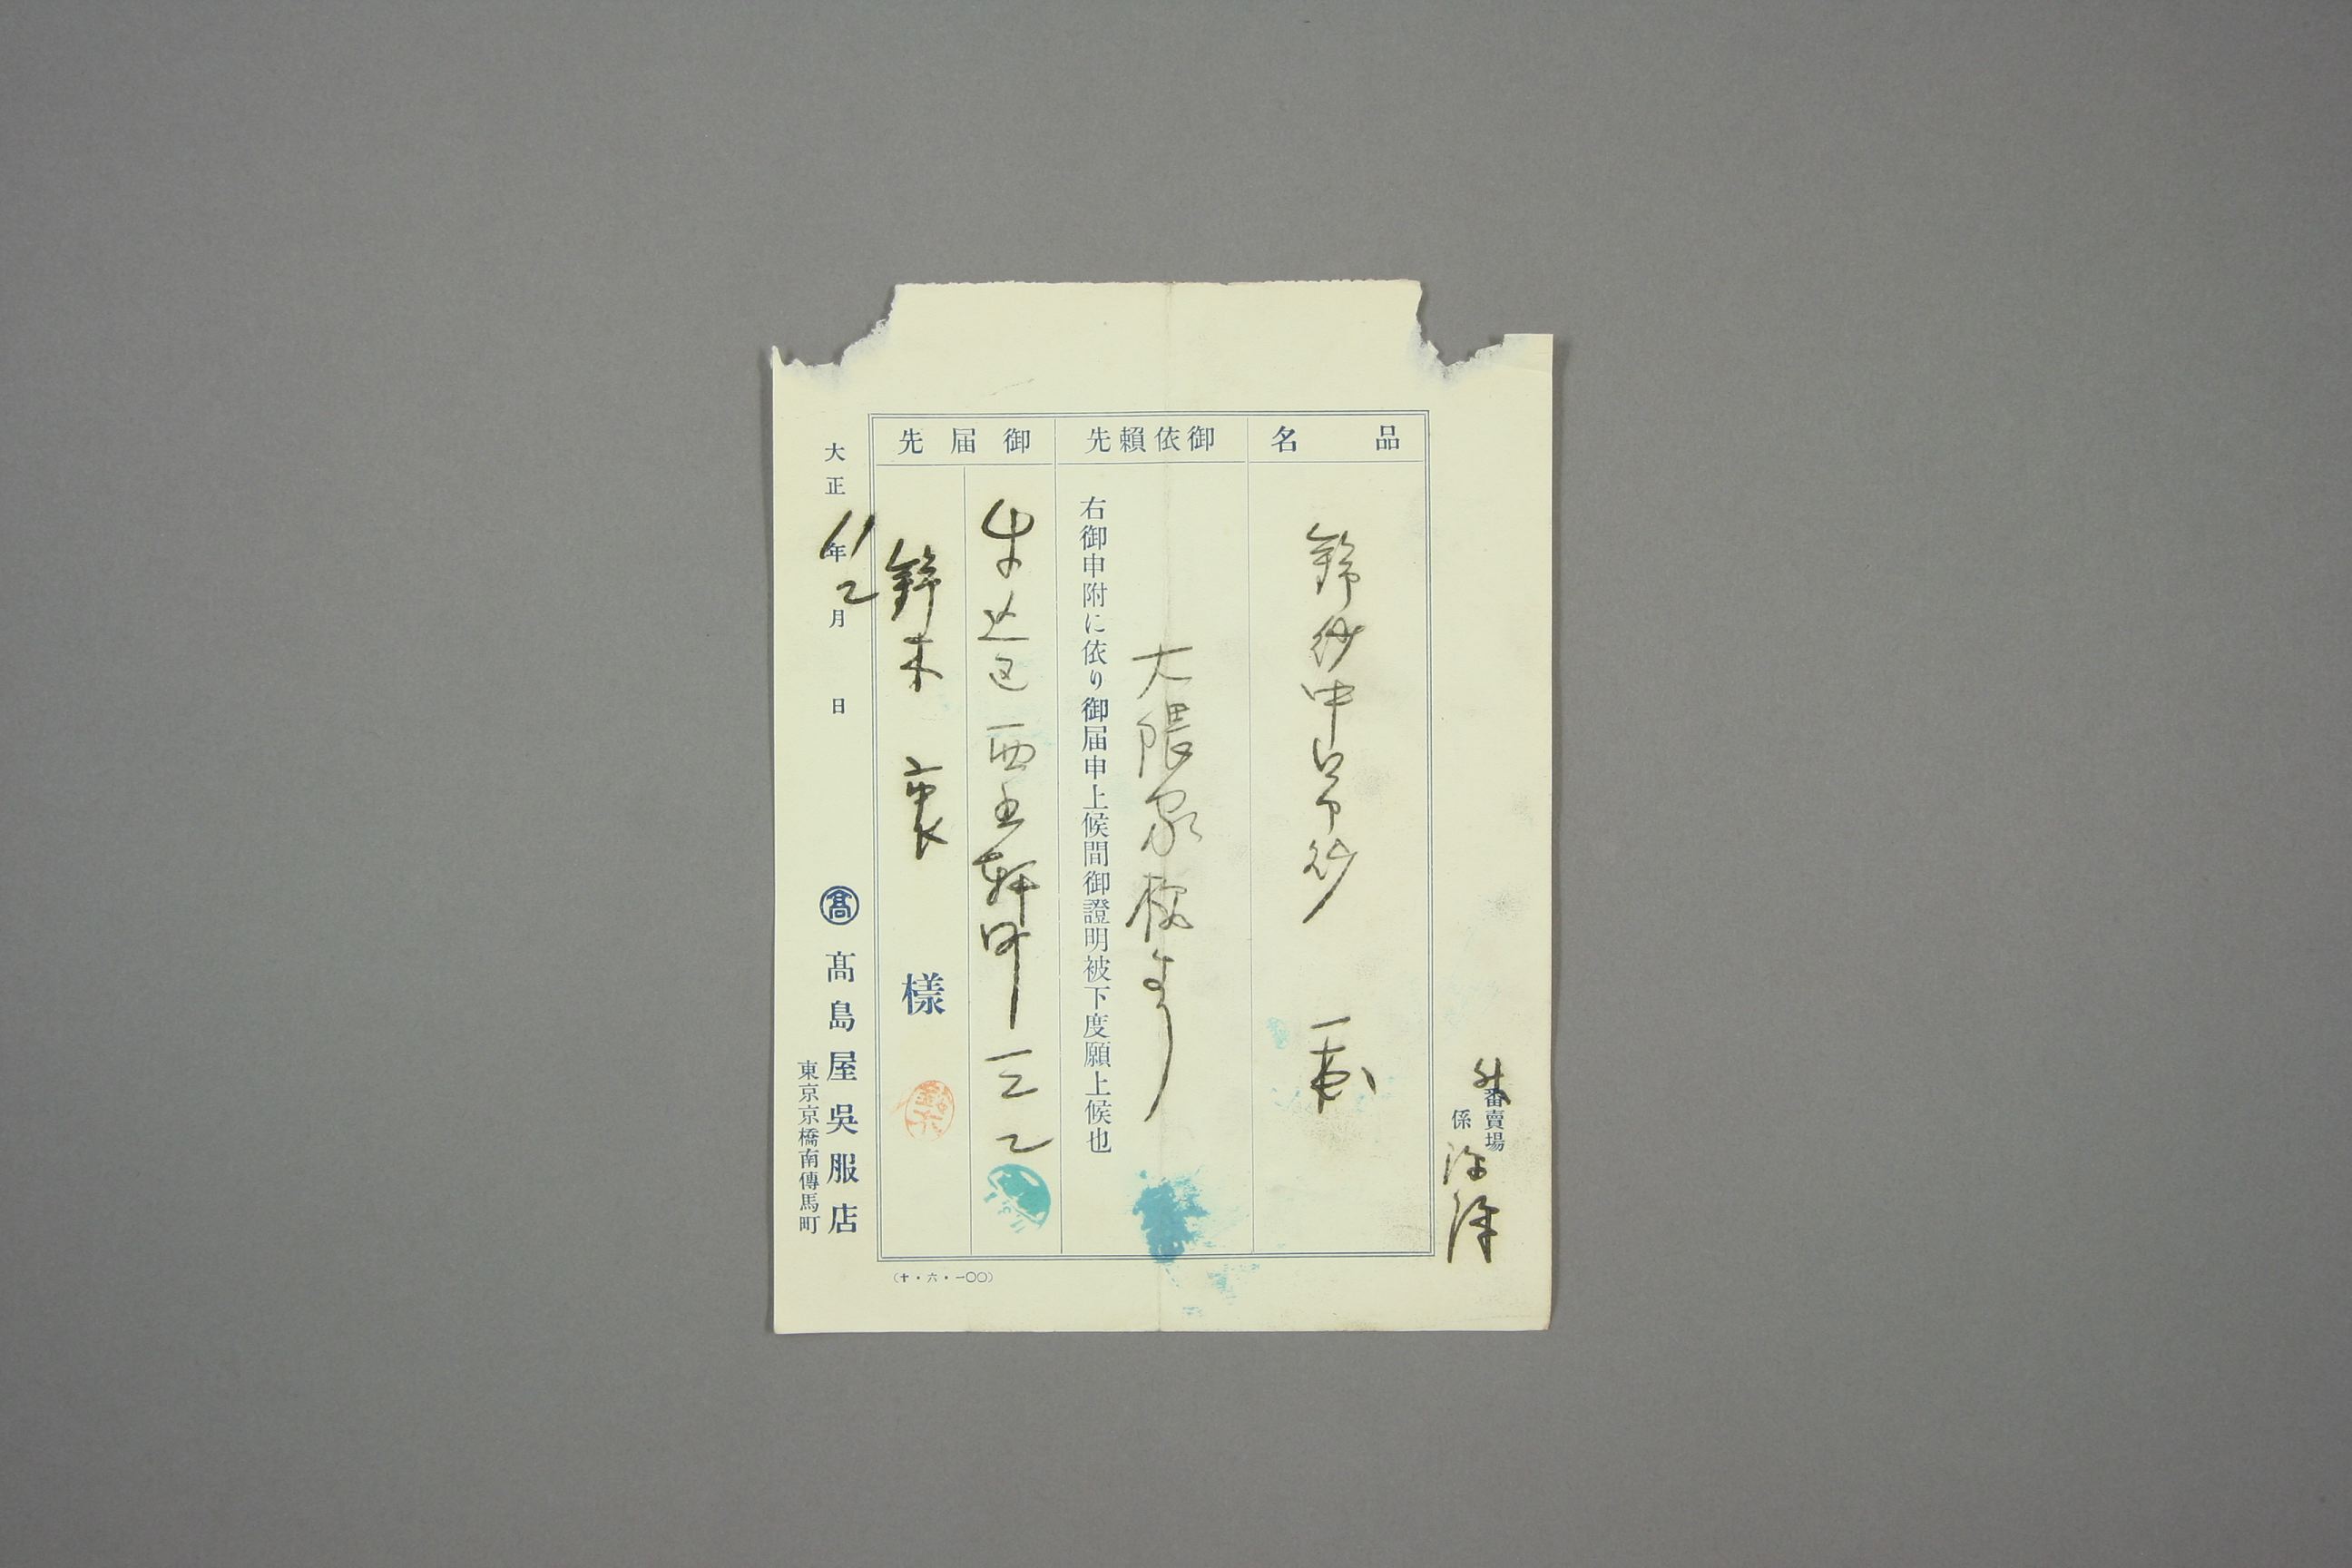 番賣場
係
品名
御依賴先
大隈家様より
右御申附に依り御届申上候間御證明被下度願上候也
御届先
牛込区西五軒町三二
鈴木 様
大正11年2月日
髙
髙島屋吳服店
東京京橋南傳馬町
(十・六・一〇〇)